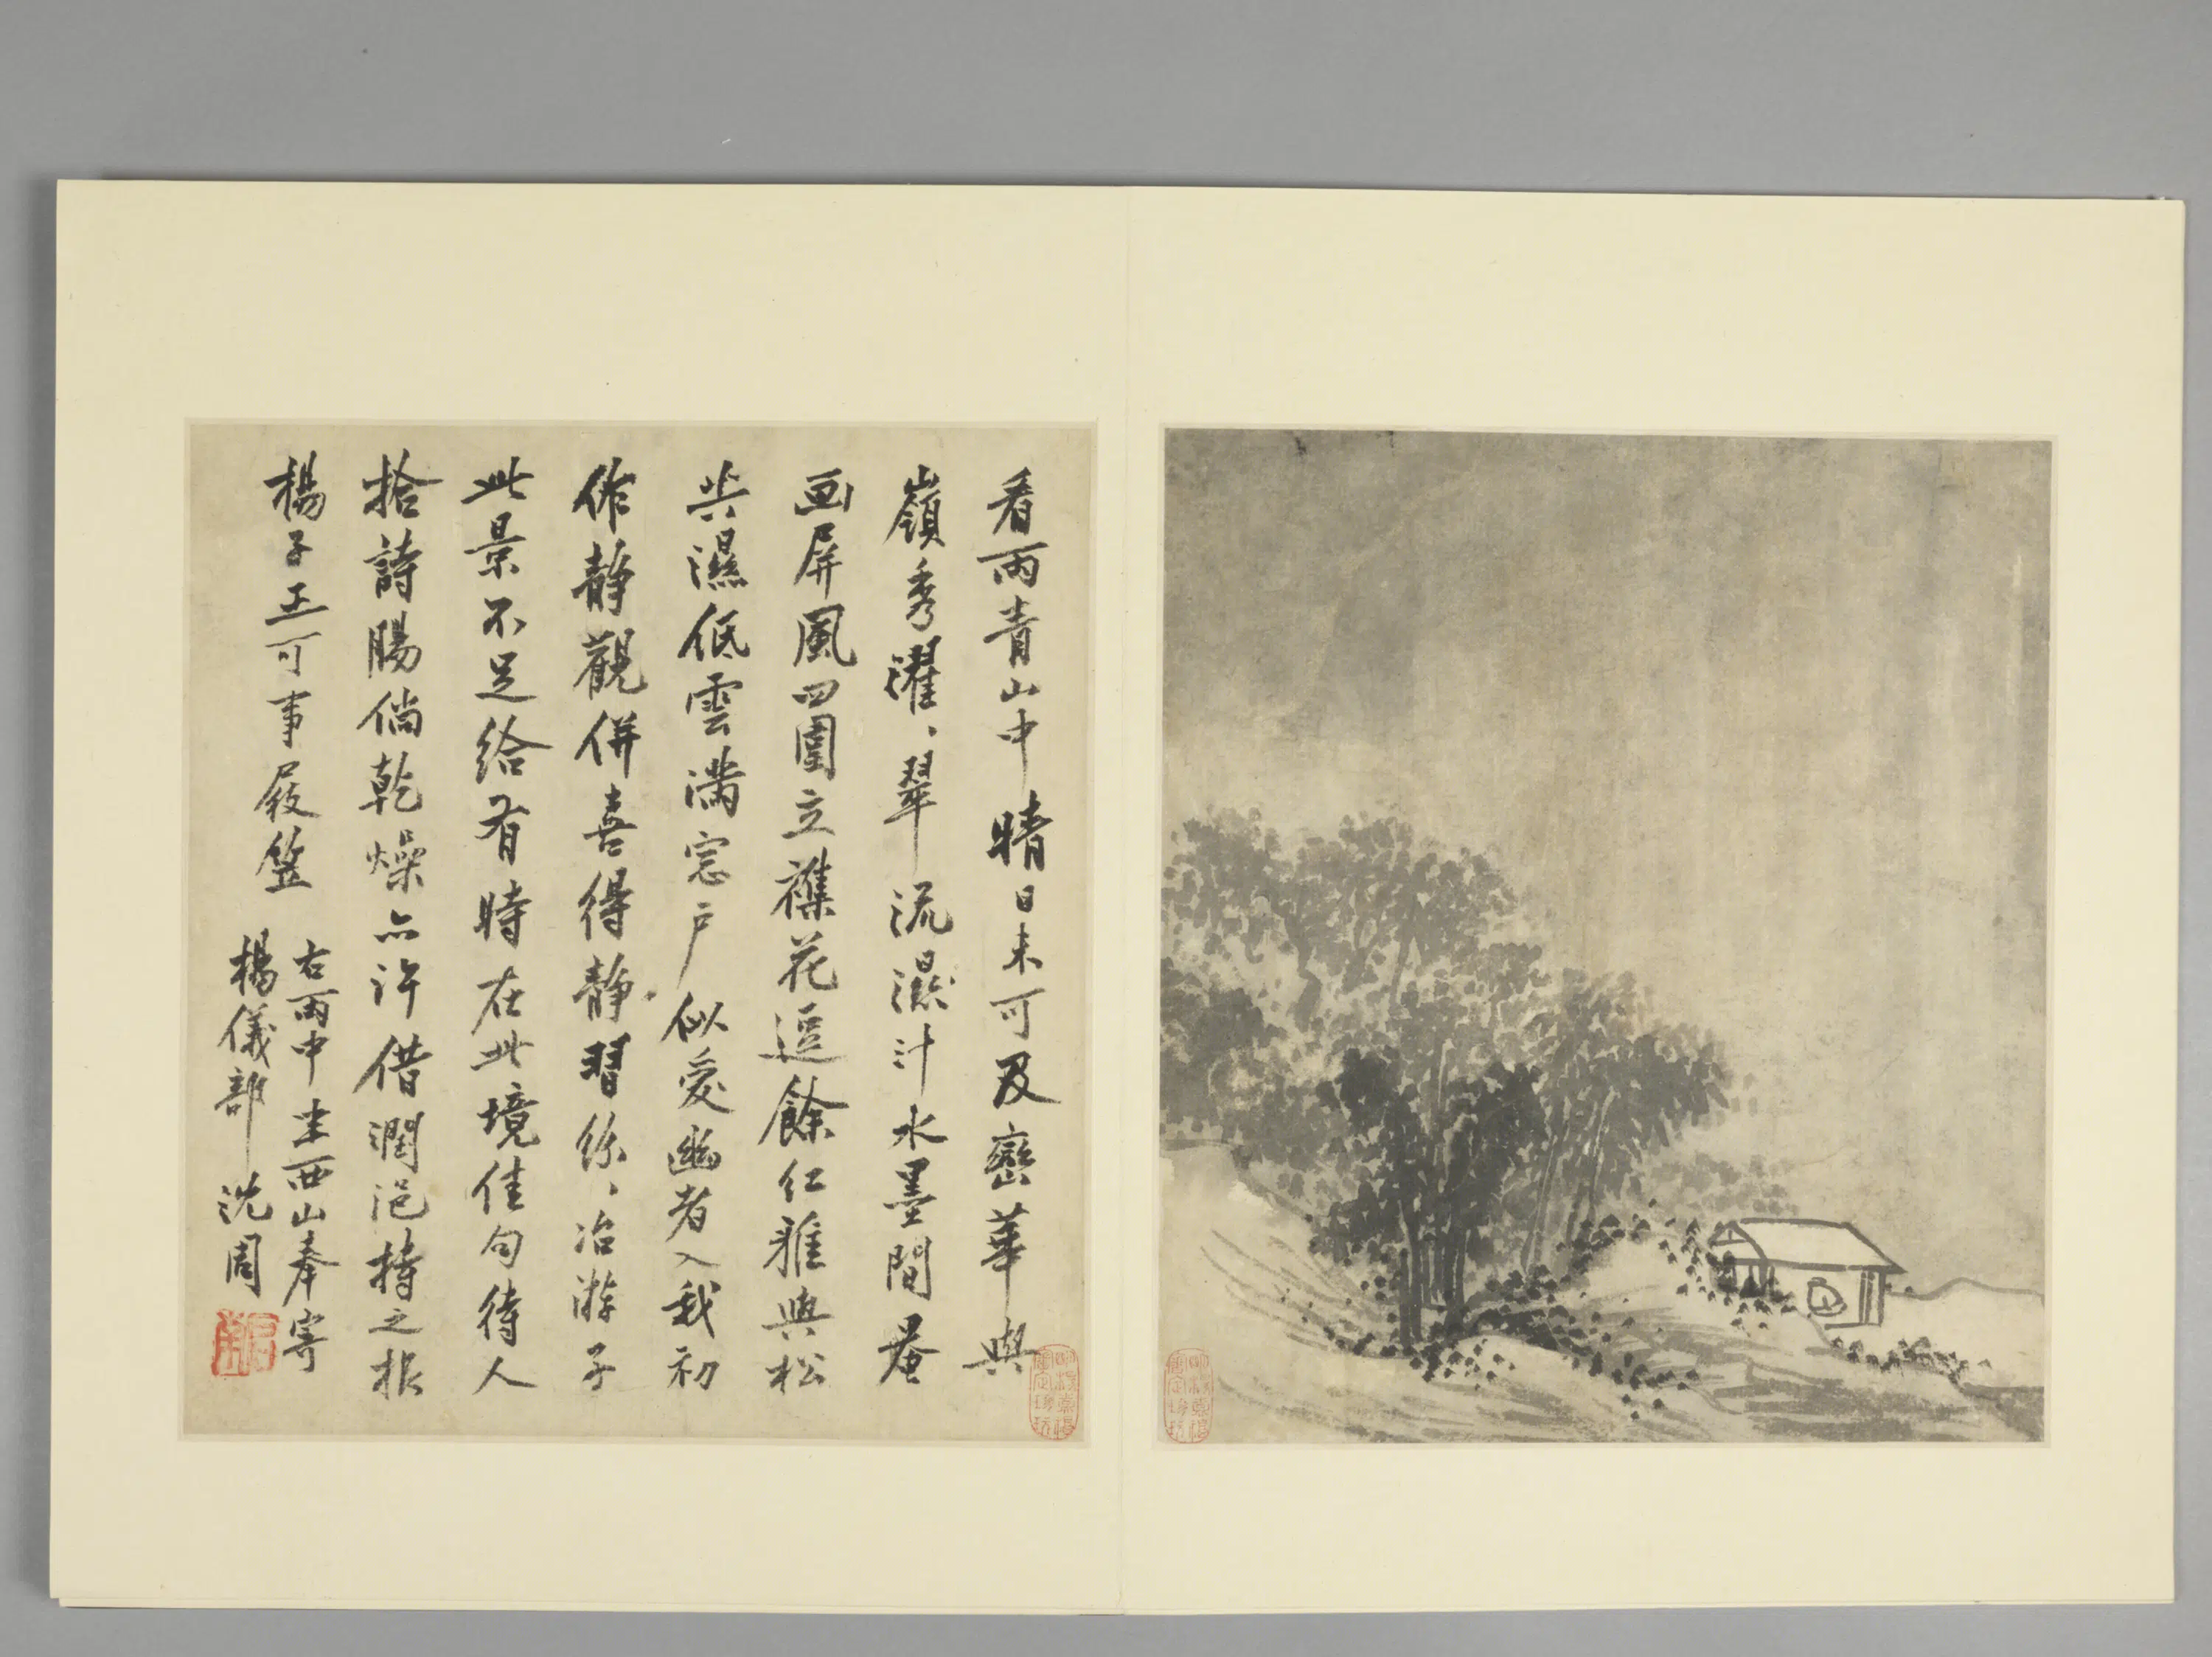 看雨青山中晴日未可及巒華與
嶺秀濯、翠流濕汁水墨間菴
画屏風四圍立襍花逗餘紅雅與松
共濕低雲滿窓戶似愛幽者入我初
作静觀併喜得静習紛、冶游子
此景不足給有時在此境佳句待人
拾詩腸倘乾燥亦許借潤浥持之報
楊子正可事屐笠
右雨中坐西山奉寄
楊儀部 沈周